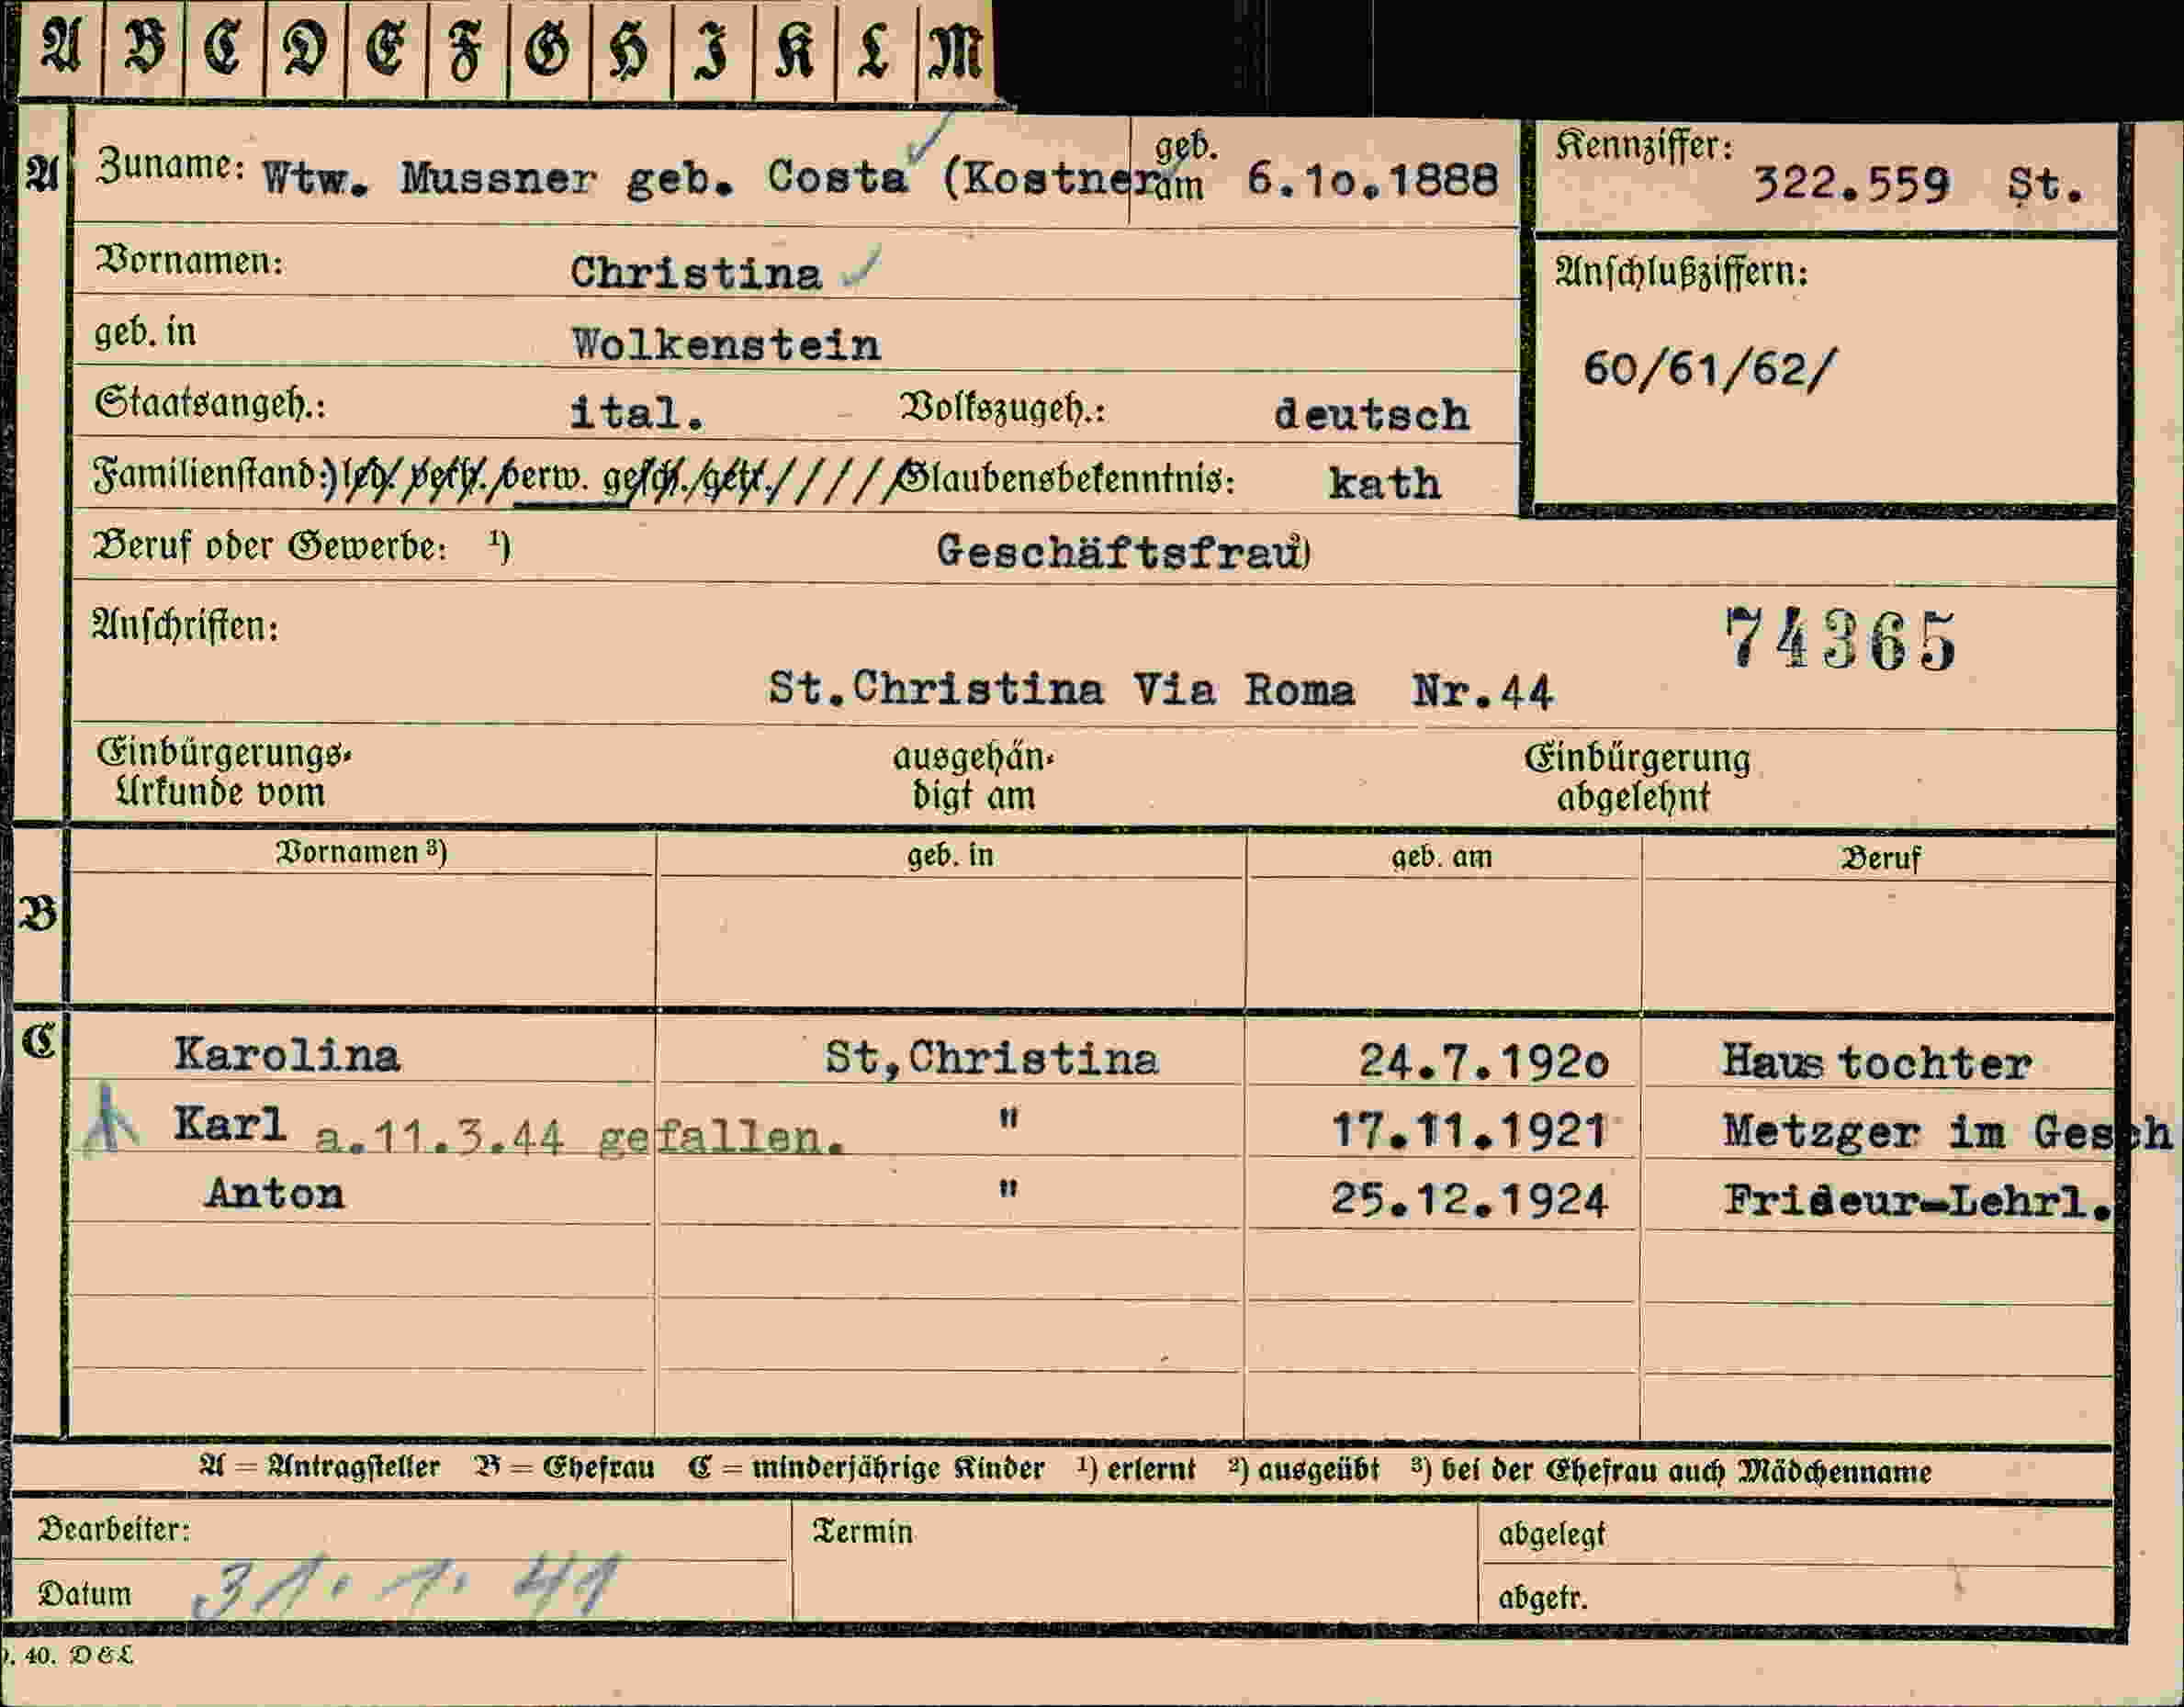 A B C D E F G H I K L M
A Zuname: Wtw. Mussner geb. Costa (Kostner geb. am 6.10.1888 Kennziffer: 322.559 St.
Vornamen: Christina
Anschlußziffern:
geb. in Wolkenstein
60/61/62/
Staatsangeh.: ital. Volkszugeh.: deutsch
Familienstand:) led./ verh./ verw. gesch./ getr./ / / / / Glaubensbekenntnis: kath
Beruf oder Gewerbe: ¹) Geschäftsfrau ²)
Anschriften:
74365
St.Christina Via Roma Nr.44
Einbürgerungs- ausgehän- Einbürgerung
Urkunde vom digt am abgelehnt
Vornamen ³) geb. in geb. am Beruf
B
C Karolina St,Christina 24.7.1920 Haustochter
Karl a.11.3.44 gefallen. " 17.11.1921 Metzger im Gesch
Anton " 25.12.1924 Friseur-Lehrl.
A = Antragsteller B = Ehefrau C = minderjährige Kinder ¹) erlernt ²) ausgeübt ³) bei der Ehefrau auch Mädchenname
Bearbeiter: Termin abgelegt
Datum 31. 1. 41 abgetr.
. 40. D & L